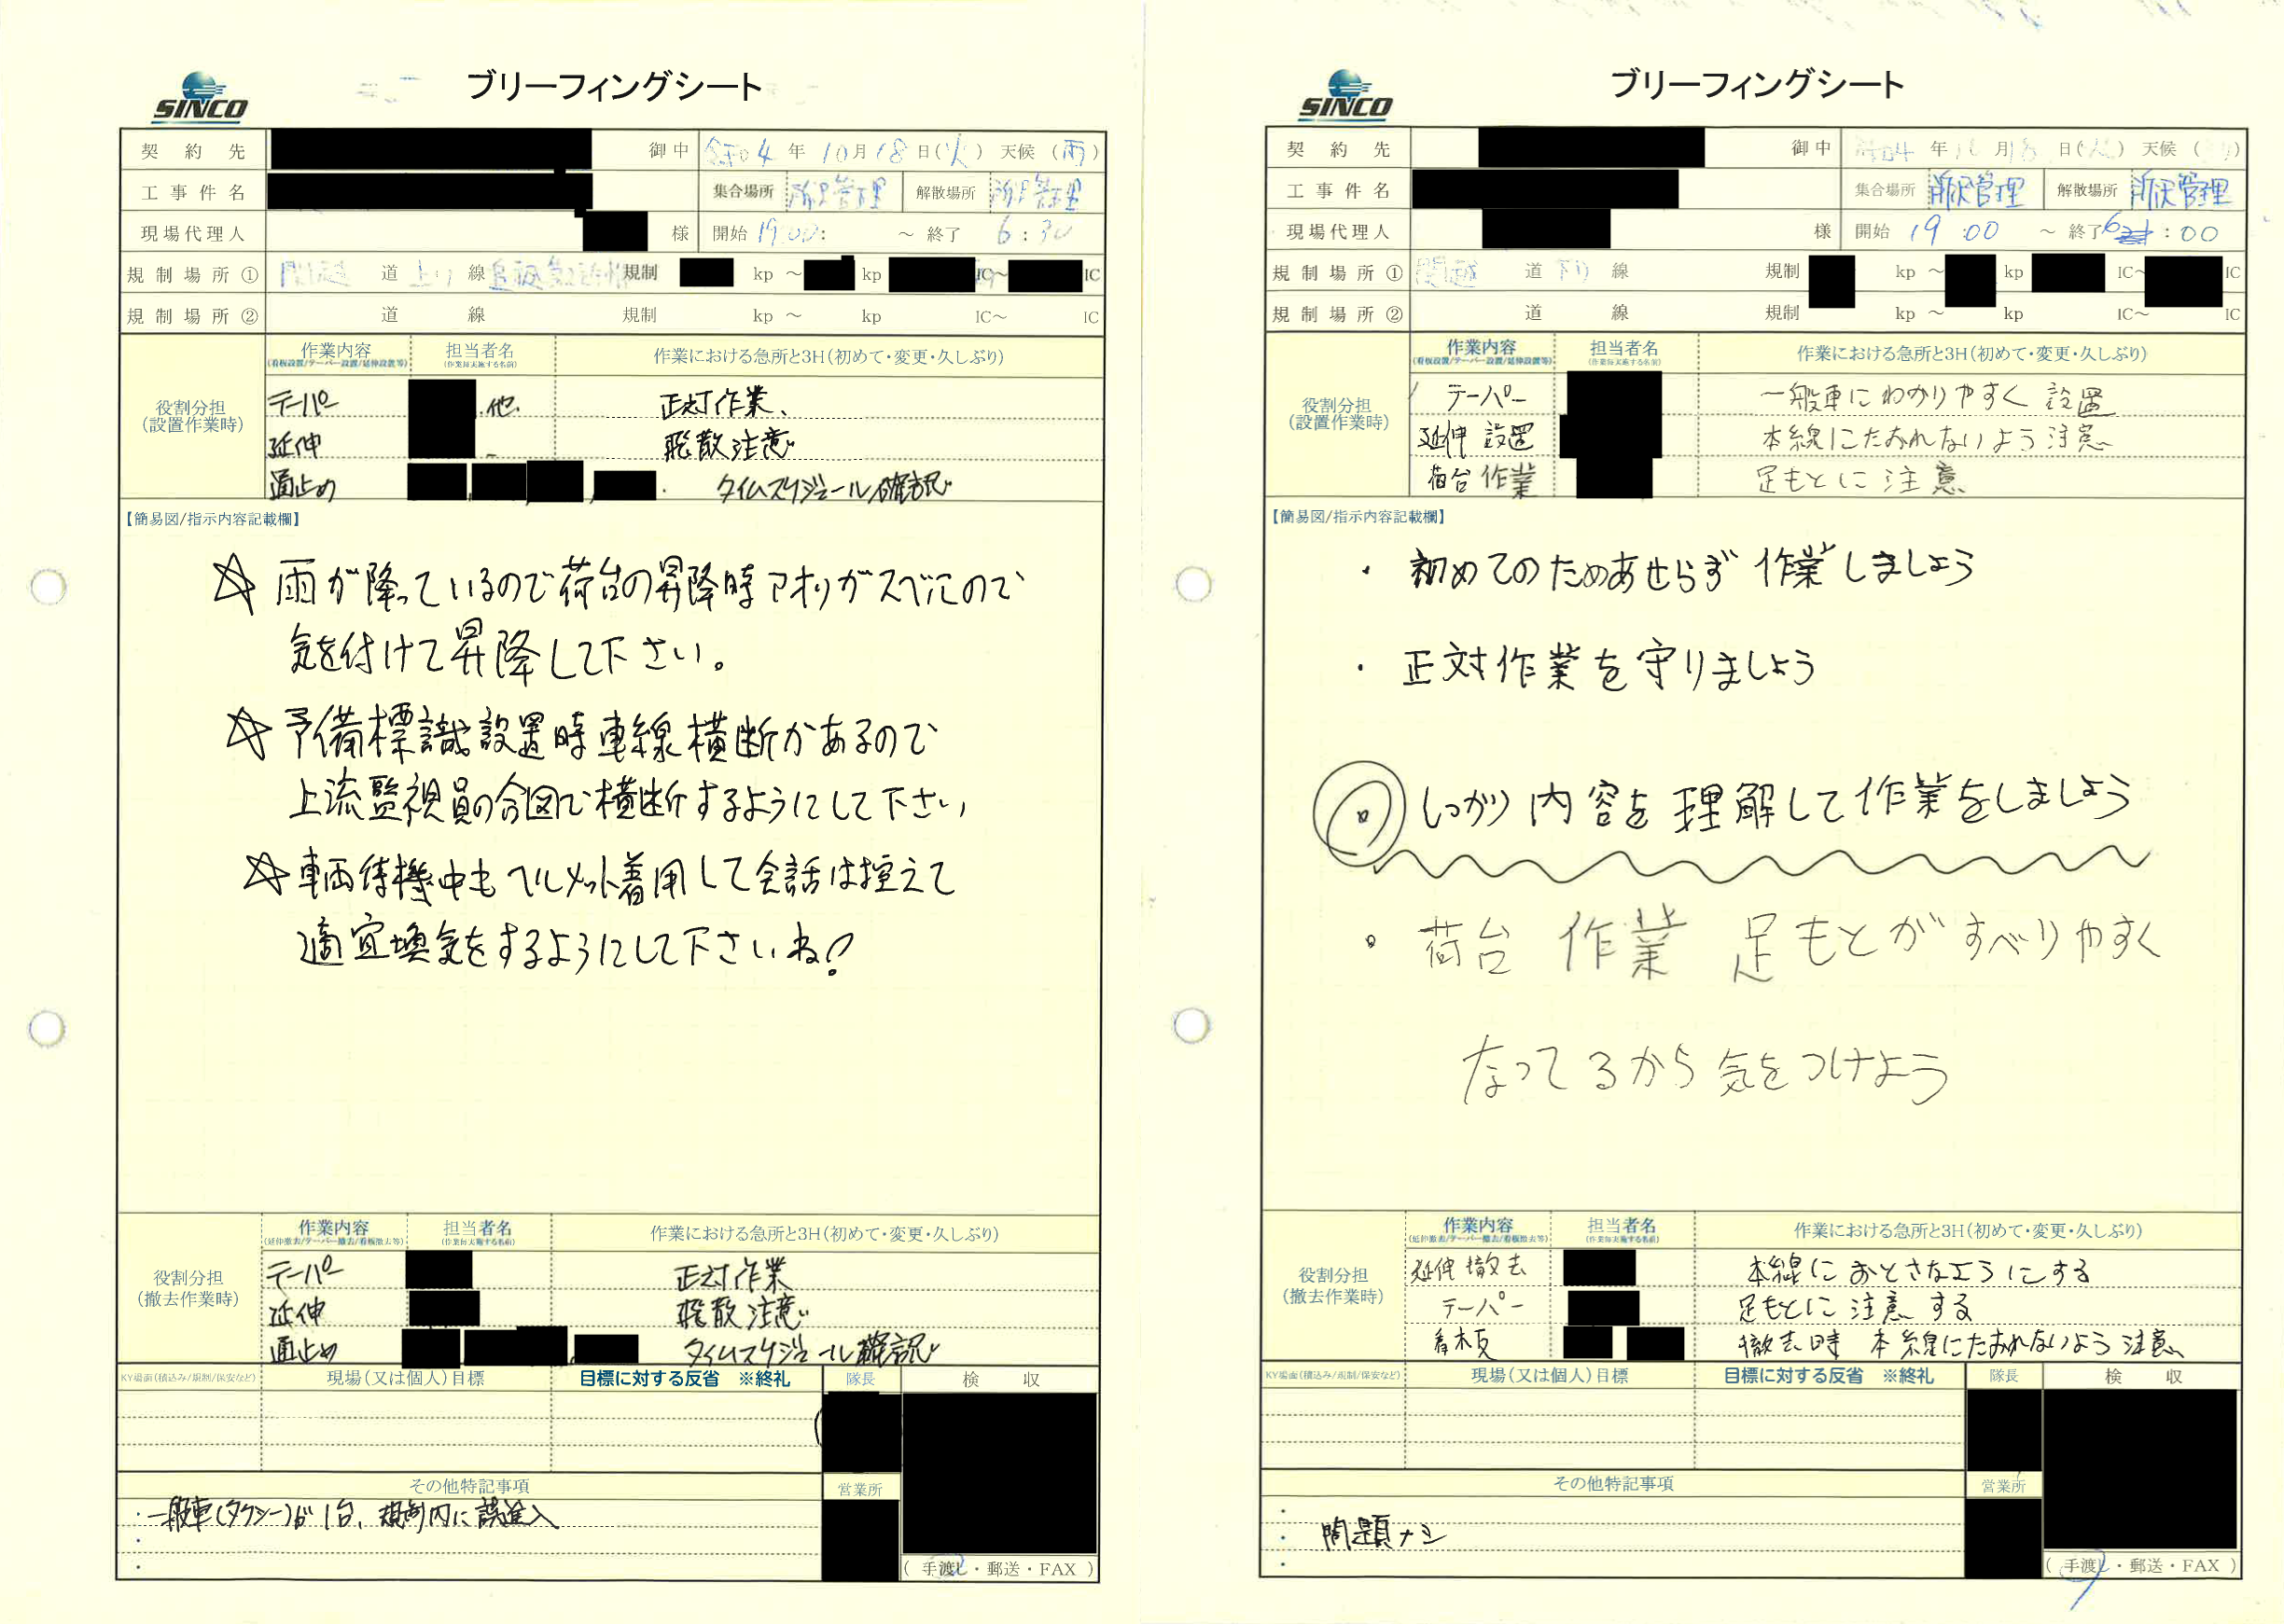 SINCO
ブリーフィングシート
契約先
御中
令和4年10月18日(火) 天候(雨)
工事件名
集合場所 所沢管理 解散場所 所沢管理
現場代理人
様 開始 19:00: ～ 終了 6:30
規制場所① 関越道 上り線 規制 kp ～ kp IC～ IC
規制場所② 道 線 規制 kp ～ kp IC～ IC
役割分担
(設置作業時)
作業内容
(看板設置/テーパー設置/延伸設置等)
担当者名
(作業毎実施する名前)
作業における急所と3H(初めて・変更・久しぶり)
テーパー 他. 正対作業、
延伸 飛散注意
通止め タイムスケジュール確認
【簡易図/指示内容記載欄】
☆ 雨が降っているので荷台の昇降時アオリがスベルので
気を付けて昇降して下さい。
☆ 予備標識設置時車線横断があるので
上流監視員の合図で横断するようにして下さい
☆ 車両待機中もヘルメット着用して会話は控えて
適宜換気をするようにして下さいね!
役割分担
(撤去作業時)
作業内容
(延伸撤去/テーパー撤去/看板撤去等)
担当者名
(作業毎実施する名前)
作業における急所と3H(初めて・変更・久しぶり)
テーパー 正対作業
延伸 飛散注意
通止め タイムスケジュール確認
KY場面(積込み/規制/保安など) 現場(又は個人)目標 目標に対する反省 ※終礼 隊長 検収
その他特記事項 営業所
・一般車(タクシー)が1台、規制内に誤進入
・
・
(手渡し・郵送・FAX)
SINCO
ブリーフィングシート
契約先
御中
令和4年10月18日(火) 天候( )
工事件名
集合場所 所沢管理 解散場所 所沢管理
現場代理人
様 開始 19:00 ～ 終了 6:00
規制場所① 関越道 下り線 規制 kp ～ kp IC～ IC
規制場所② 道 線 規制 kp ～ kp IC～ IC
役割分担
(設置作業時)
作業内容
(看板設置/テーパー設置/延伸設置等)
担当者名
(作業毎実施する名前)
作業における急所と3H(初めて・変更・久しぶり)
テーパー 一般車にわかりやすく設置
延伸設置 本線にたおれないよう注意
荷台作業 足もとに注意
【簡易図/指示内容記載欄】
・初めてのためあせらず作業しましょう
・正対作業を守りましょう
◎ しっかり内容を理解して作業をしましょう
・荷台作業 足もとがすべりやすく
なってるから気をつけよう
役割分担
(撤去作業時)
作業内容
(延伸撤去/テーパー撤去/看板撤去等)
担当者名
(作業毎実施する名前)
作業における急所と3H(初めて・変更・久しぶり)
延伸撤去 本線におとさなようにする
テーパー 足もとに注意する
看板 撤去時 本線にたおれないよう注意
KY場面(積込み/規制/保安など) 現場(又は個人)目標 目標に対する反省 ※終礼 隊長 検収
その他特記事項 営業所
・
・問題ナシ
・
(手渡し・郵送・FAX)